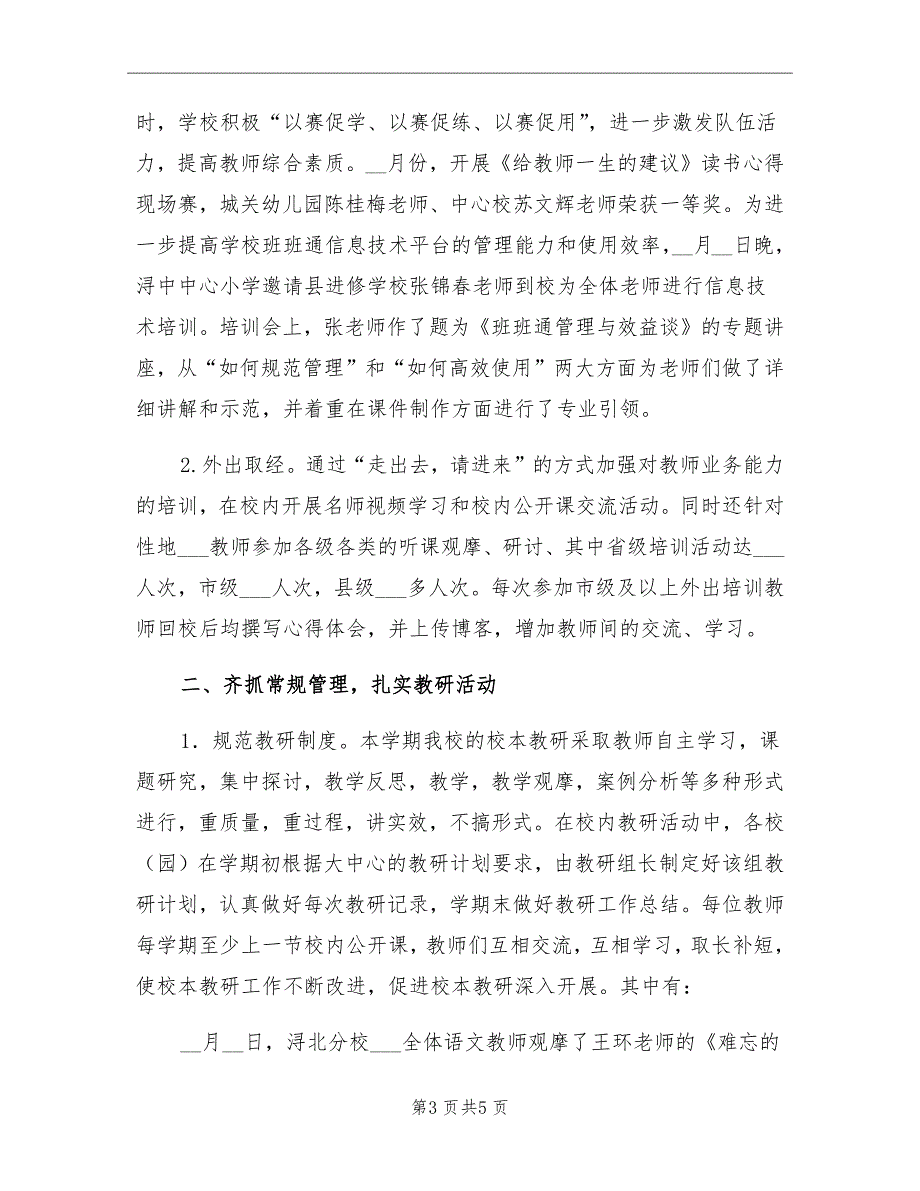 时，学校积极“以赛促学、以赛促练、以赛促用”，进一步激发队伍活
力，提高教师综合素质。__月份，开展《给教师一生的建议》读书心得
现场赛，城关幼儿园陈桂梅老师、中心校苏文辉老师荣获一等奖。为进
一步提高学校班班通信息技术平台的管理能力和使用效率，__月__日晚，
浔中中心小学邀请县进修学校张锦春老师到校为全体老师进行信息技
术培训。培训会上，张老师作了题为《班班通管理与效益谈》的专题讲
座，从“如何规范管理”和“如何高效使用”两大方面为老师们做了详
细讲解和示范，并着重在课件制作方面进行了专业引领。
2.外出取经。通过“走出去，请进来”的方式加强对教师业务能力
的培训，在校内开展名师视频学习和校内公开课交流活动。同时还针对
性地___教师参加各级各类的听课观摩、研讨、其中省级培训活动达___
人次，市级___人次，县级___多人次。每次参加市级及以上外出培训教
师回校后均撰写心得体会，并上传博客，增加教师间的交流、学习。
二、齐抓常规管理，扎实教研活动
1．规范教研制度。本学期我校的校本教研采取教师自主学习，课
题研究，集中探讨，教学反思，教学，教学观摩，案例分析等多种形式
进行，重质量，重过程，讲实效，不搞形式。在校内教研活动中，各校
（园）在学期初根据大中心的教研计划要求，由教研组长制定好该组教
研计划，认真做好每次教研记录，学期末做好教研工作总结。每位教师
每学期至少上一节校内公开课，教师们互相交流，互相学习，取长补短，
使校本教研工作不断改进，促进校本教研深入开展。其中有：
__月__日，浔北分校___全体语文教师观摩了王环老师的《难忘的
第3 页共5 页